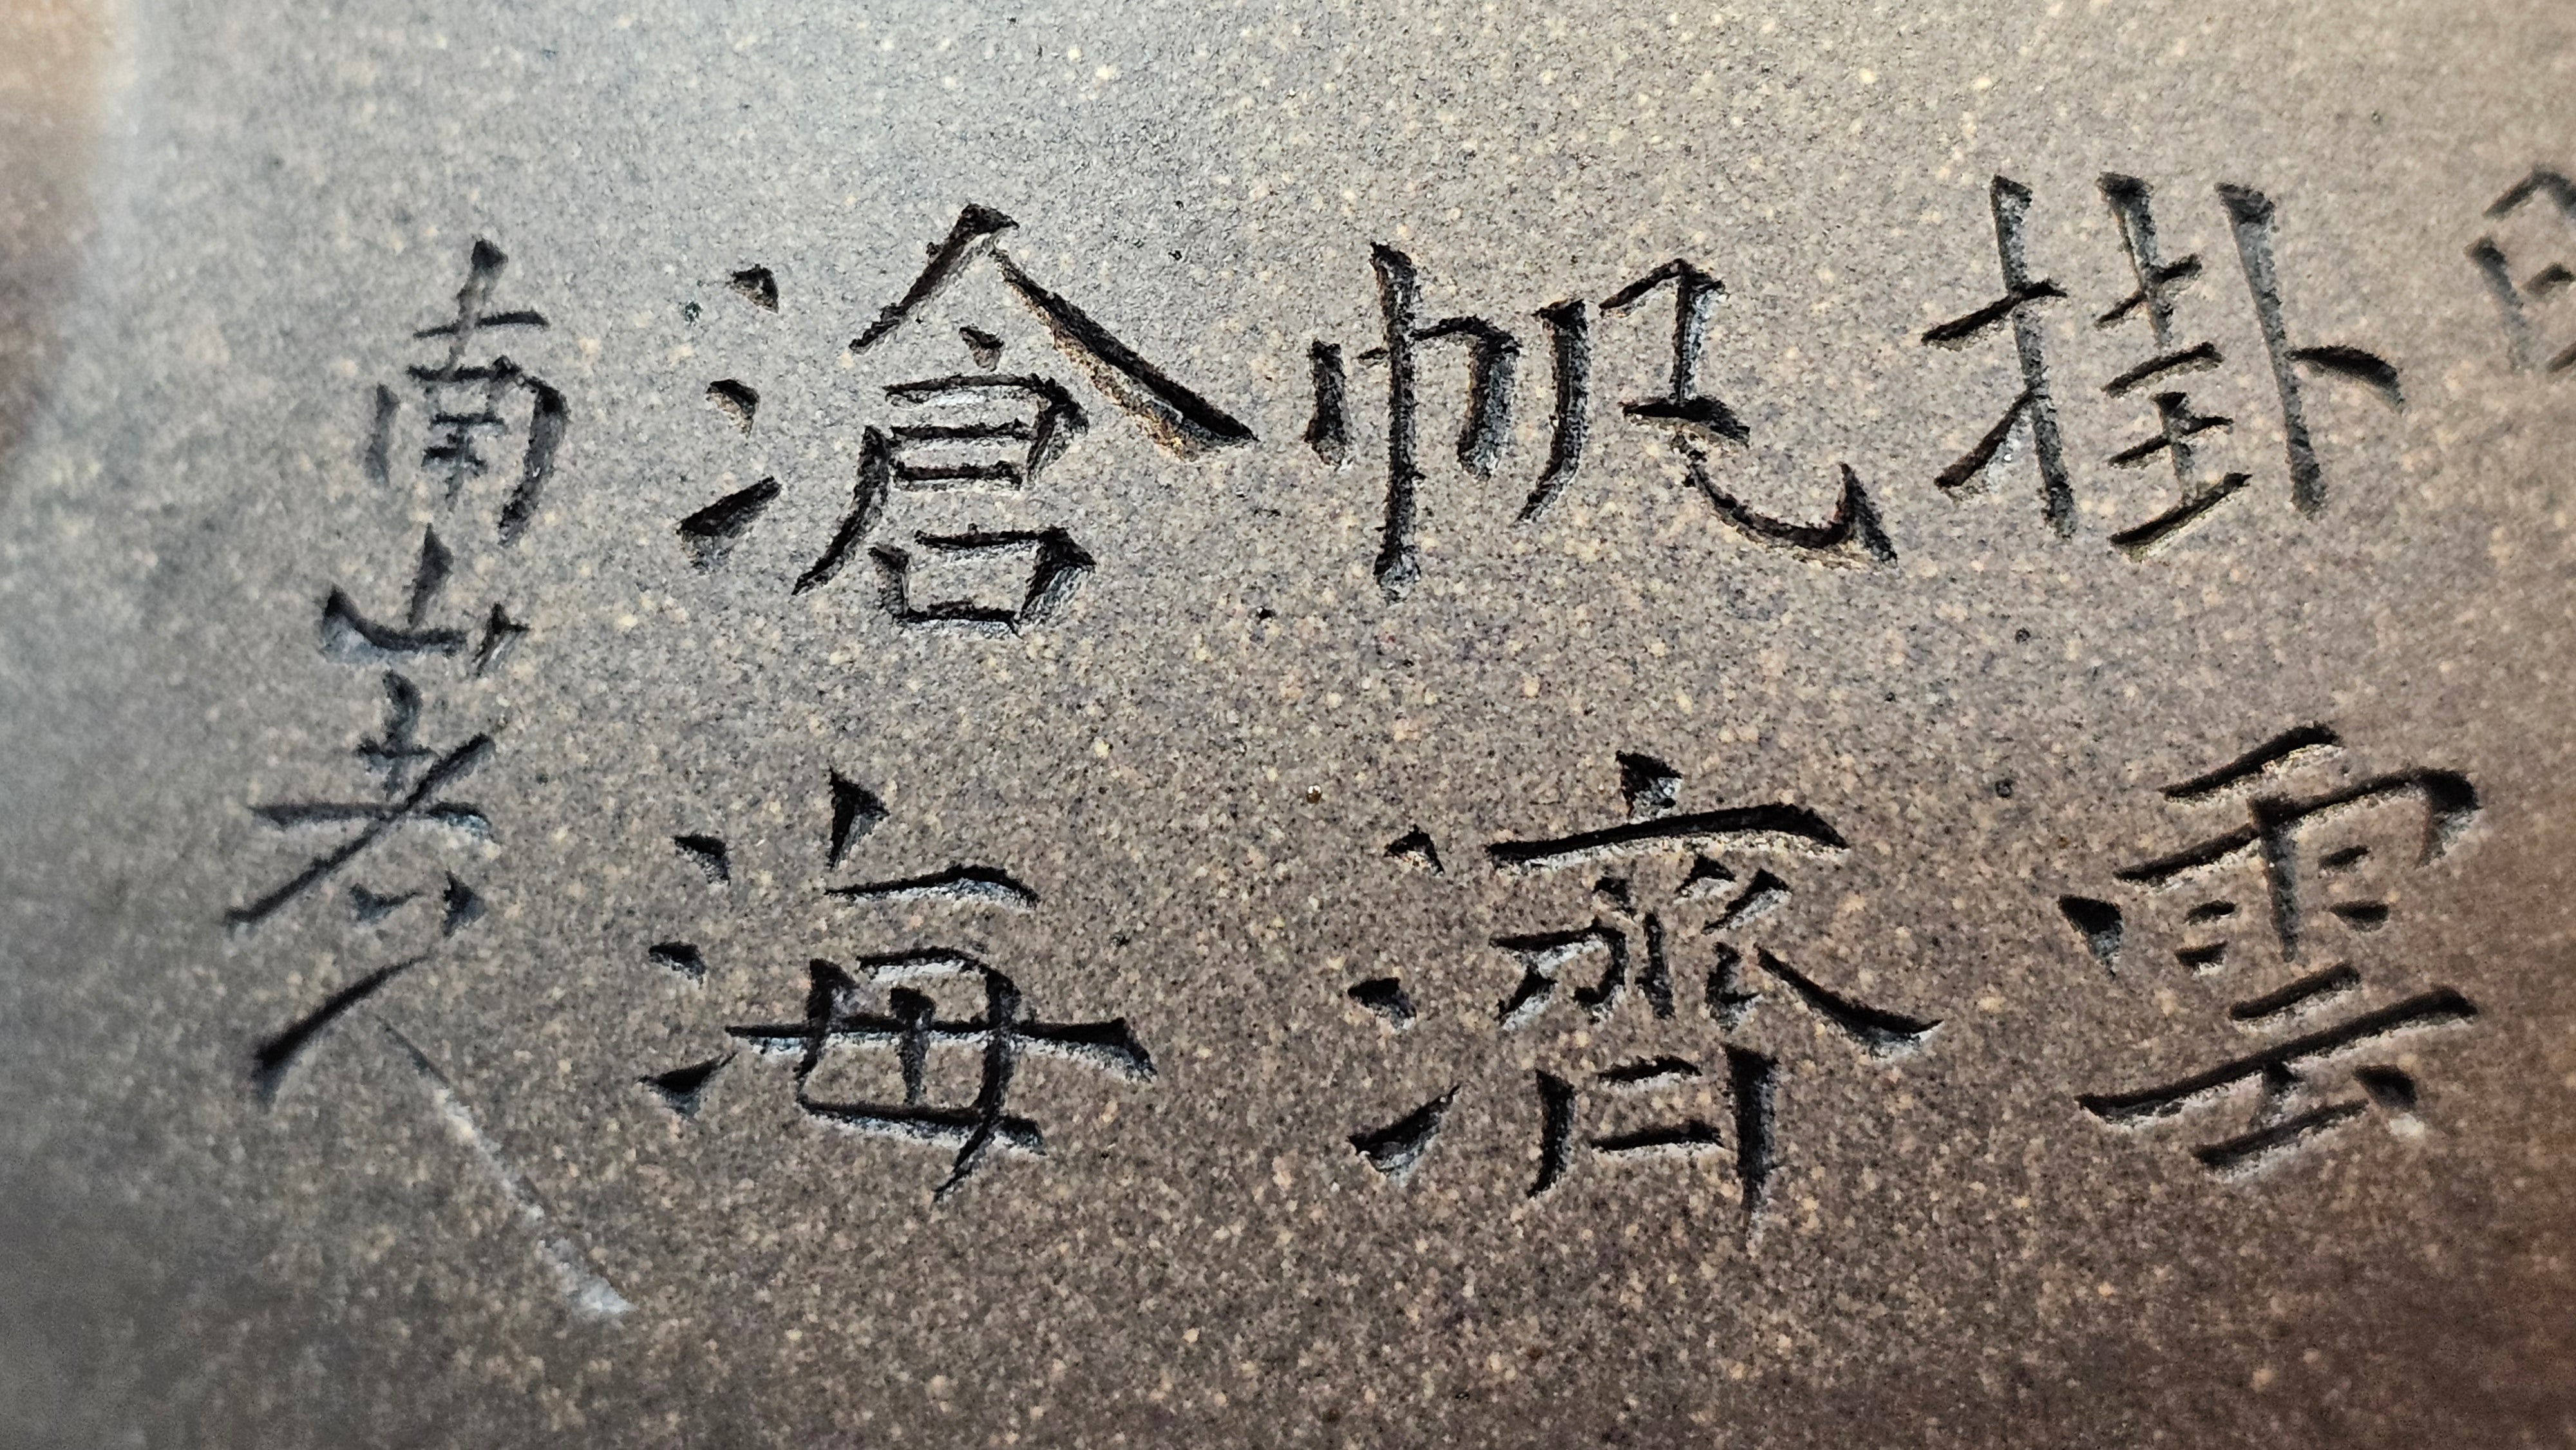 掛雲
帆濟
滄海
南山老人